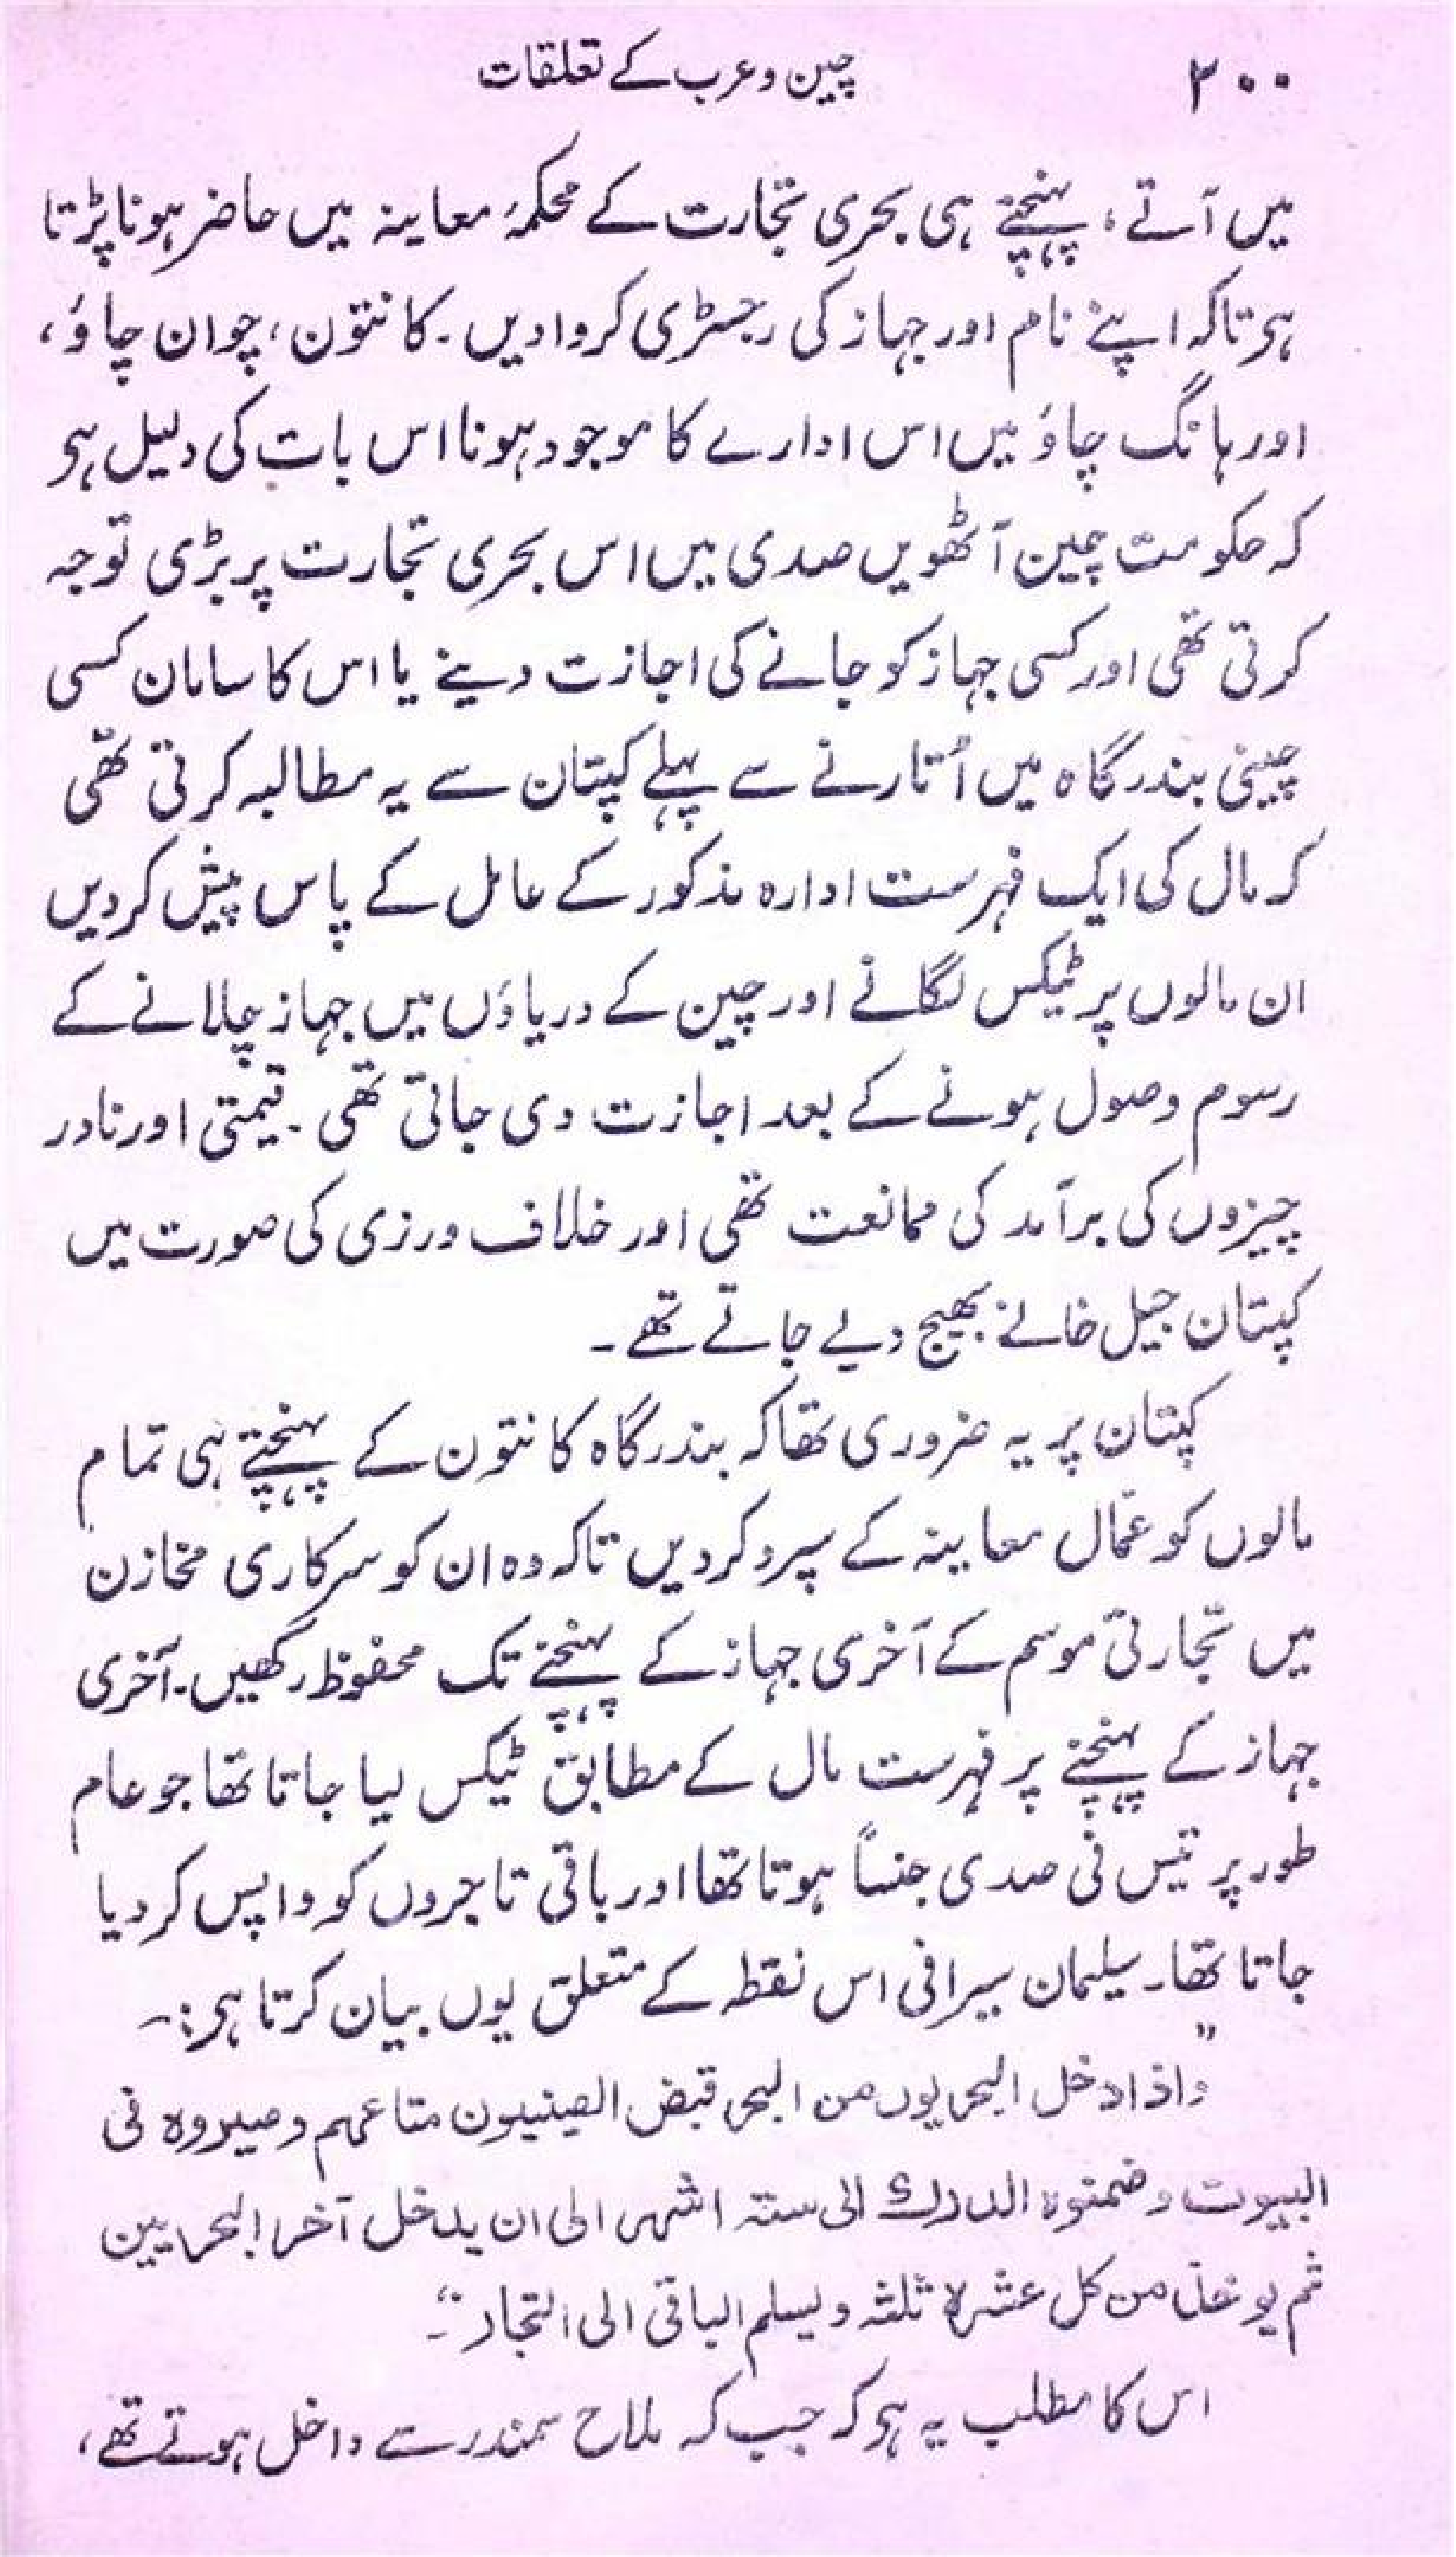 ۲۰۰ چین و عرب کے تعلقات
میں آتے، پہنچتے ہی بحری تجارت کے محکمۂ معاینہ میں حاضر ہونا پڑتا
ہی تاکہ اپنے نام اور جہاز کی رجسٹری کروا دیں۔ کانتون، چوان چاؤ،
اور ہانگ چاؤ میں اس ادارے کا موجود ہونا اس بات کی دلیل ہی
کہ حکومت چین آٹھویں صدی میں اس بحری تجارت پر بڑی توجہ
کرتی تھی اور کسی جہاز کو جانے کی اجازت دینے یا اس کا سامان کسی
چینی بندرگاہ میں اُتارنے سے پہلے کپتان سے یہ مطالبہ کرتی تھی
کہ مال کی ایک فہرست ادارہ مذکور کے عامل کے پاس پیش کر دیں
ان مالوں پر ٹیکس لگانے اور چین کے دریاؤں میں جہاز چلانے کے
رسوم وصول ہونے کے بعد اجازت دی جاتی تھی۔ قیمتی اور نادر
چیزوں کی برآمد کی ممانعت تھی اور خلاف ورزی کی صورت میں
کپتان جیل خانے بھیج دیے جاتے تھے۔
کپتان پر یہ ضروری تھا کہ بندرگاہ کانتون کے پہنچتے ہی تمام
مالوں کو عمّال معاینہ کے سپرد کر دیں تاکہ وہ ان کو سرکاری مخازن
میں تجارتی موسم کے آخری جہاز کے پہنچنے تک محفوظ رکھیں۔ آخری
جہاز کے پہنچنے پر فہرست مال کے مطابق ٹیکس لیا جاتا تھا جو عام
طور پر تیس فی صدی جنساً ہوتا تھا اور باقی تاجروں کو واپس کر دیا
جاتا تھا۔ سیلمان سیرافی اس نقطہ کے متعلق یوں بیان کرتا ہی:۔
"واذا دخل البحریون من البحر قبض الصینیون متاعهم وصیروه فی
البیوت وضمنوه الدرك الی ستة اشهر الی ان یدخل آخر البحریین
ثم یوخذ من کل عشرة ثلثه ویسلم الباقی الی التجار"۔
اس کا مطلب یہ ہی کہ جب کہ ملاح سمندر سے داخل ہوتے تھے،